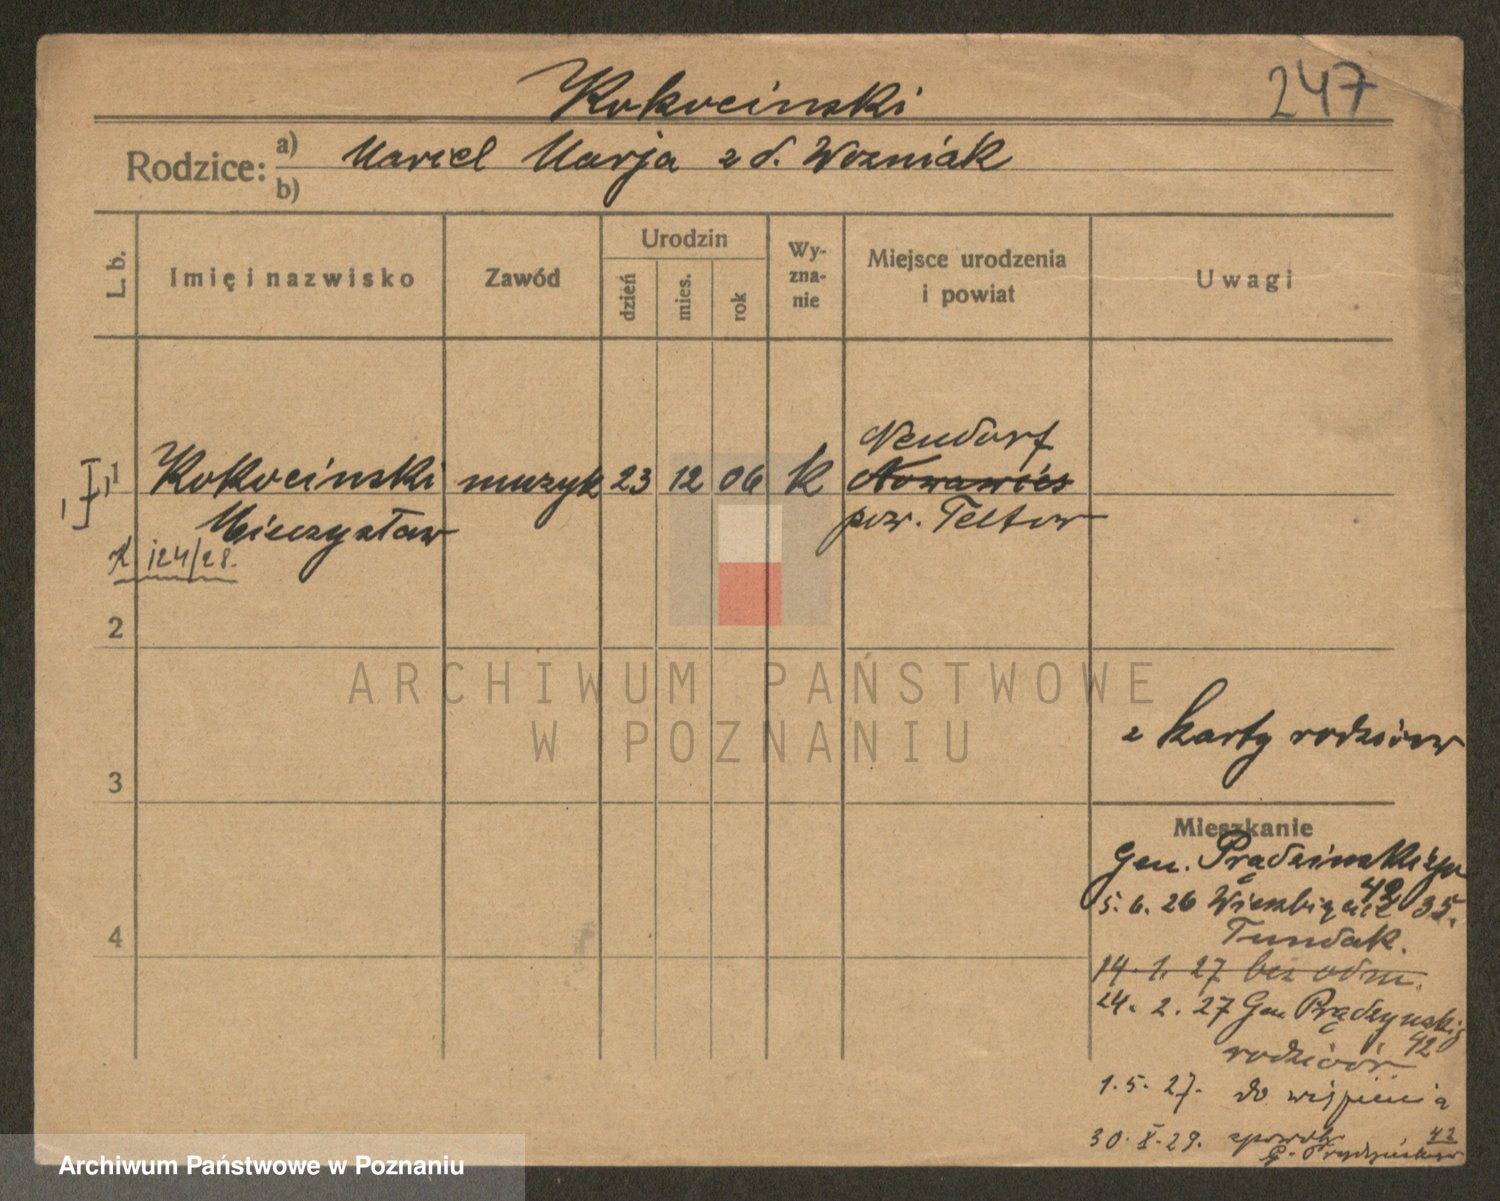 Kokocinski
247
Rodzice: a) Marcel Marja z d. Wozniak
b)
L. b.
Imię i nazwisko
Zawód
Urodzin
dzień
mies.
rok
Wy-
zna-
nie
Miejsce urodzenia
i powiat
Uwagi
Neudorf
1 Kokocinski muzyk 23 12 06 k Nowawieś
Mieczysław pow. Teltow
K 124/28.
2
z karty rodziców
3
Mieszkanie
Gen. Prądzinskiego
42
5. 6. 26 Wierzbięcice 35.
Tundak.
4
14. 1. 27 bez odm.
24. 2. 27 Gen Prądzynskig
42
rodziców
1. 5. 27. do więzienia
30. X. 29.
42
ARCHIWUM PAŃSTWOWE
W POZNANIU
Archiwum Państwowe w Poznaniu